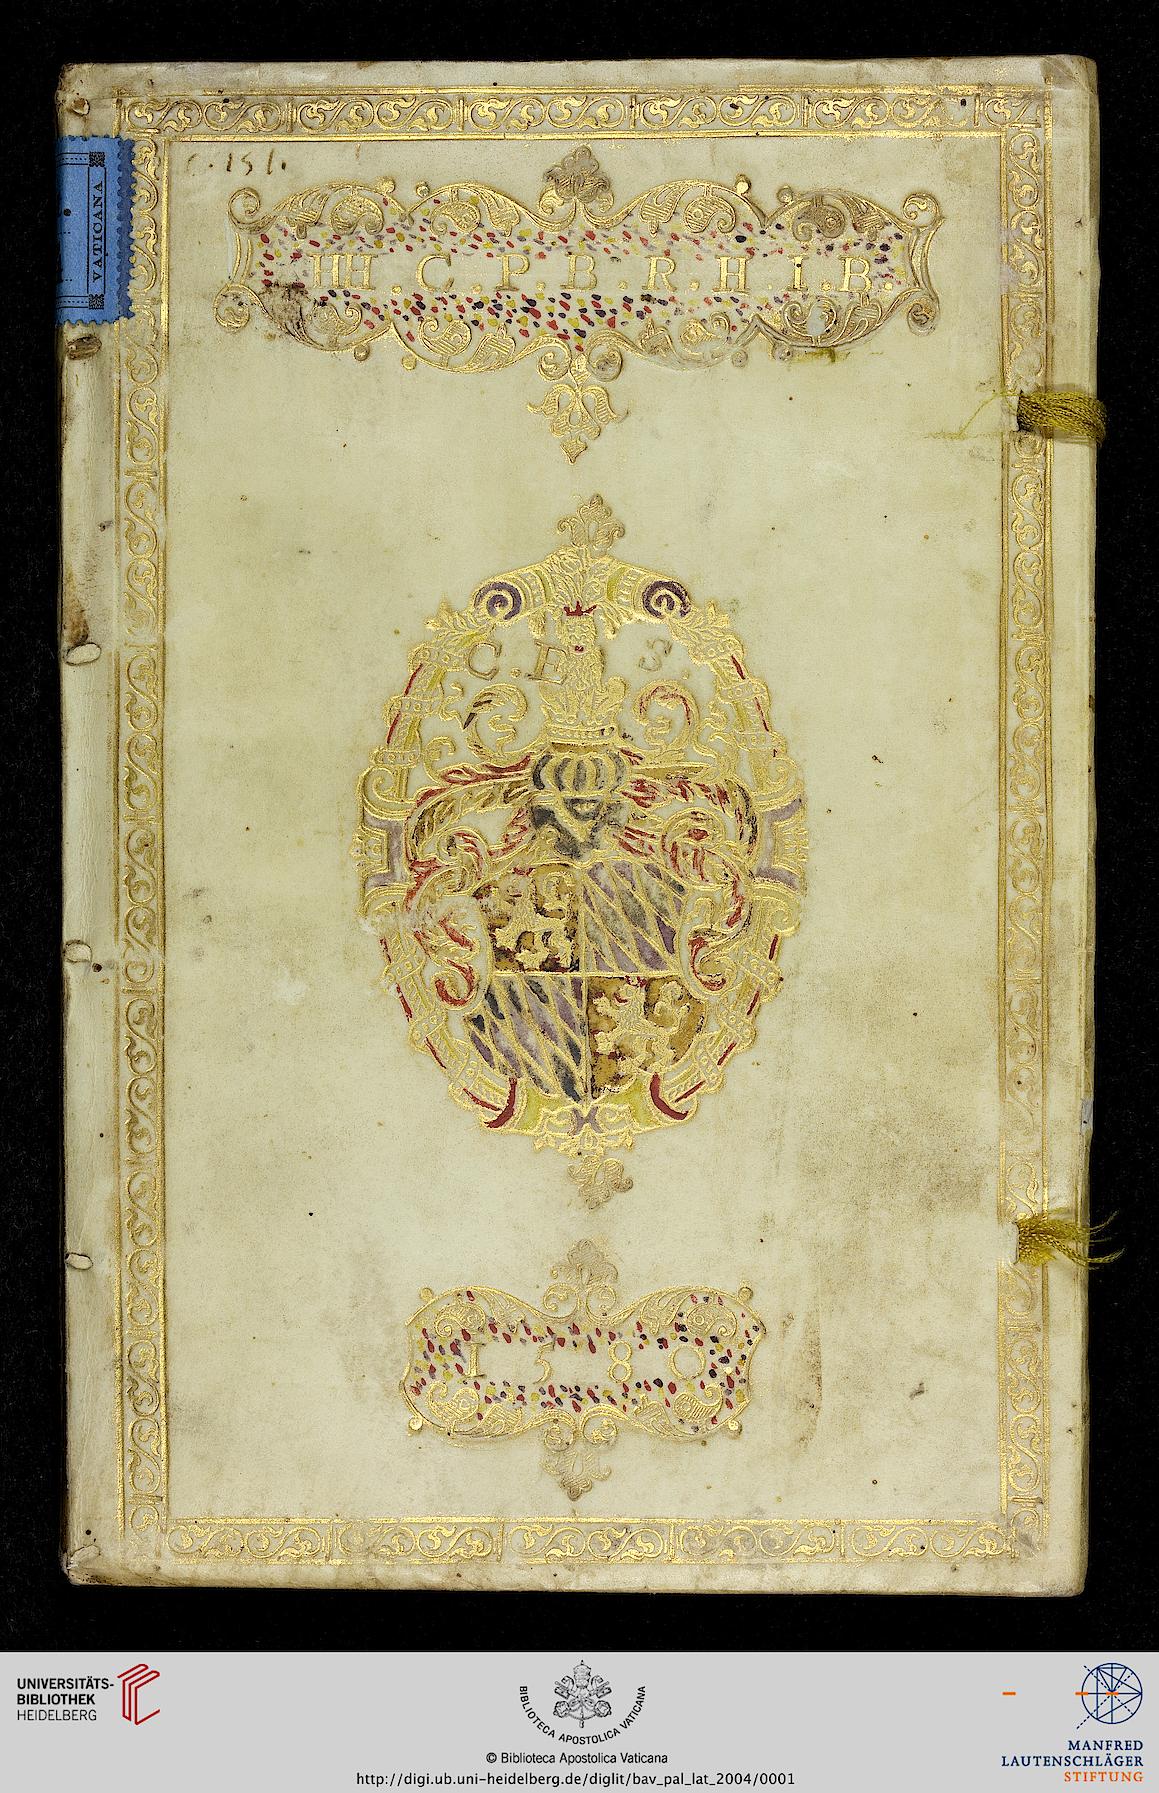 C. 151.
VATICANA
HH.C.P.B.R.H.I.B.
C.E S.
1580
UNIVERSITÄTS-
BIBLIOTHEK
HEIDELBERG
BIBLIOTECA APOSTOLICA VATICANA
© Biblioteca Apostolica Vaticana
http://digi.ub.uni-heidelberg.de/diglit/bav_pal_lat_2004/0001
MANFRED
LAUTENSCHLÄGER
STIFTUNG